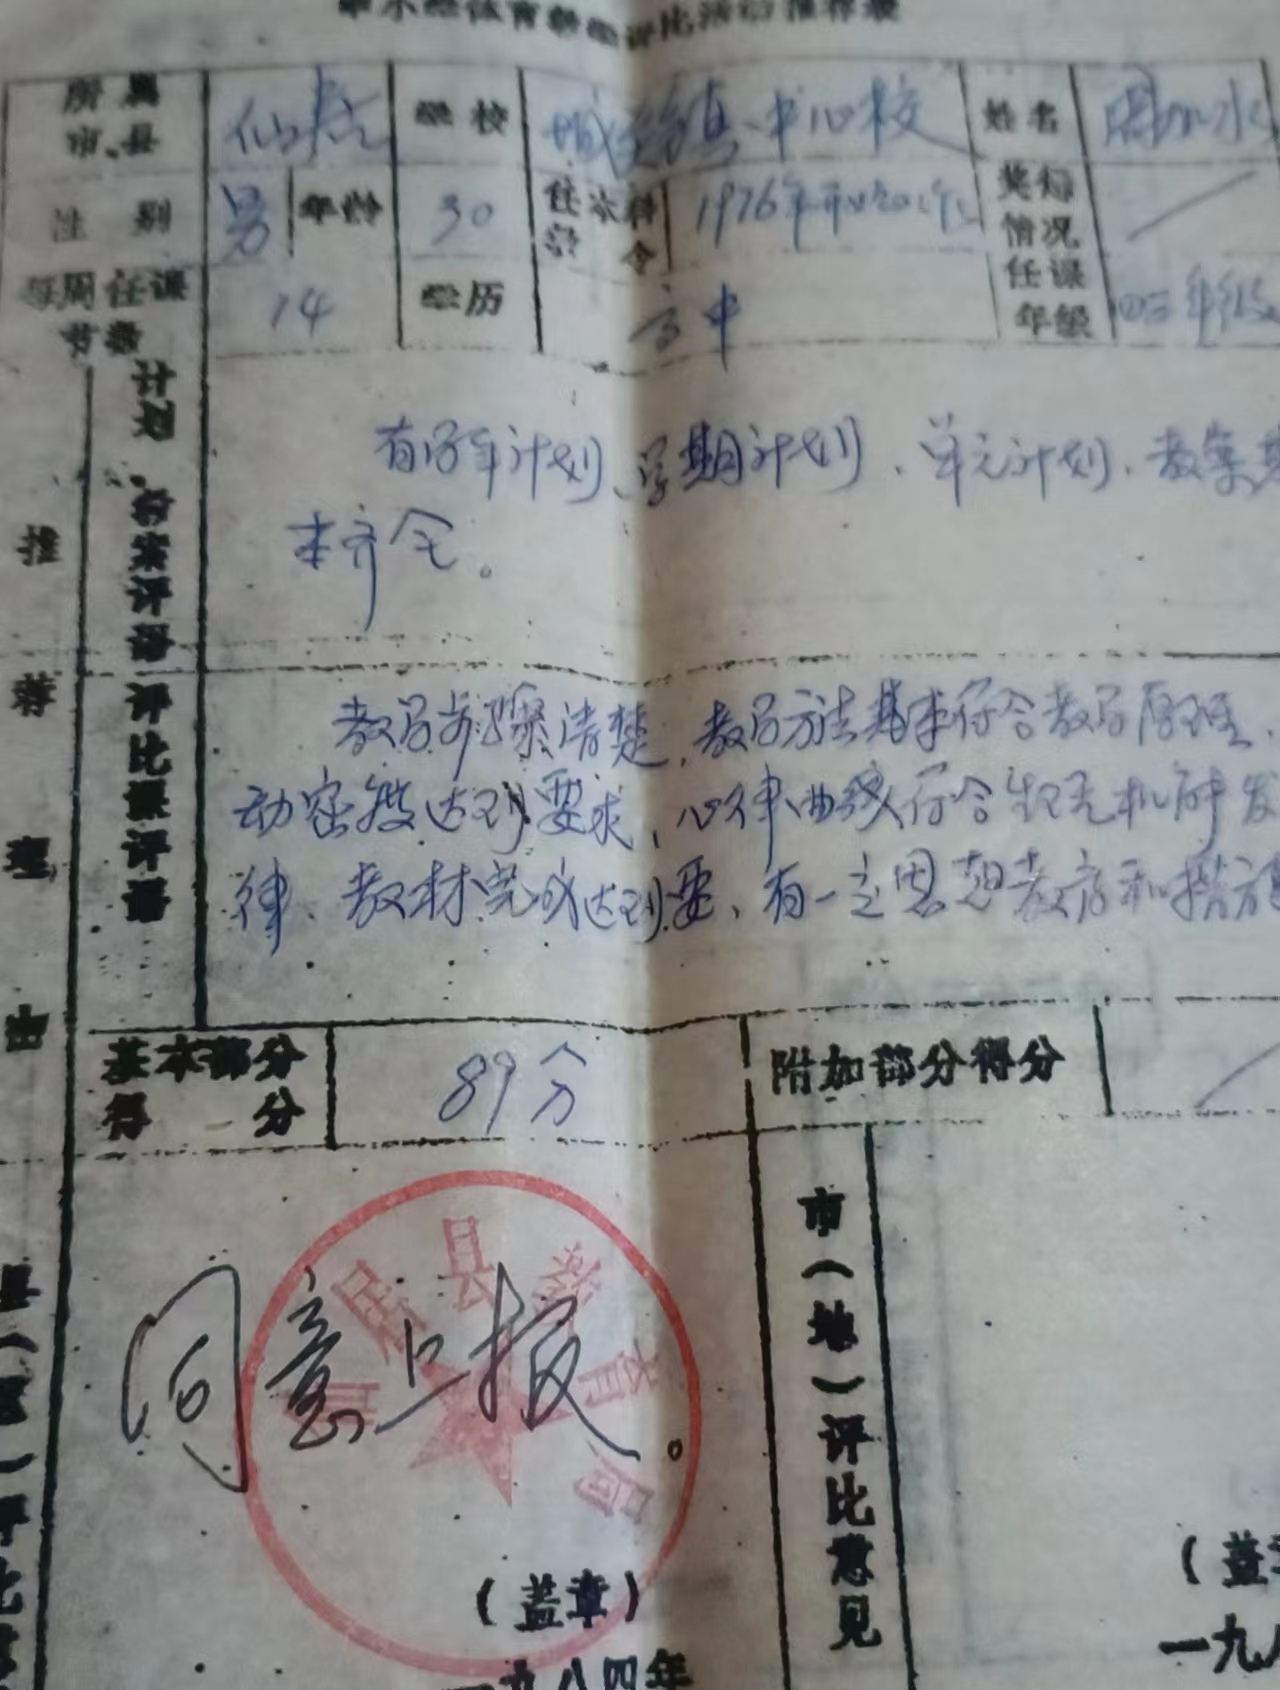 中小学体育教学评比活动推荐表
所属市县 仙居 学校 城关镇中心校 姓名 周加水
性别 男 年龄 30 任本科 1976年开始 奖惩情况 /
每周任课节数 14 学历 高中 任课年级 四三年级
推荐理由
计划教案评语
有学年计划、学期计划、单元计划、教案基
本齐全。
评比课评语
教学步骤清楚,教学方法基本符合教学原理,
动密度达到要求,心律曲线符合生理机能发
律、教材完成达到要,有一定思想教育和措施
基本部分得分 89分 附加部分得分 /
同意上报。
仙居县教育局
市(地)评比意见
(盖章) (盖章
一九八四年 一九八